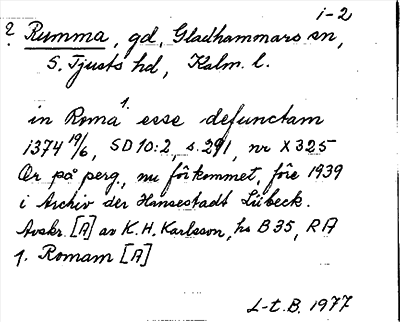 1-2
2. Rumma, gd, Gladhammars sn,
S. Tjusts hd, Kalm. l.
in Roma 1. esse defunctam
1374 19/6, SD 10:2, s. 291, nr X 325
Or på perg., nu förkommet, före 1939
i Archiv der Hansestadt Lübeck.
Avskr. [A] av K. H. Karlsson, hs B 35, RA
1. Romam [A]
L-t. B. 1977